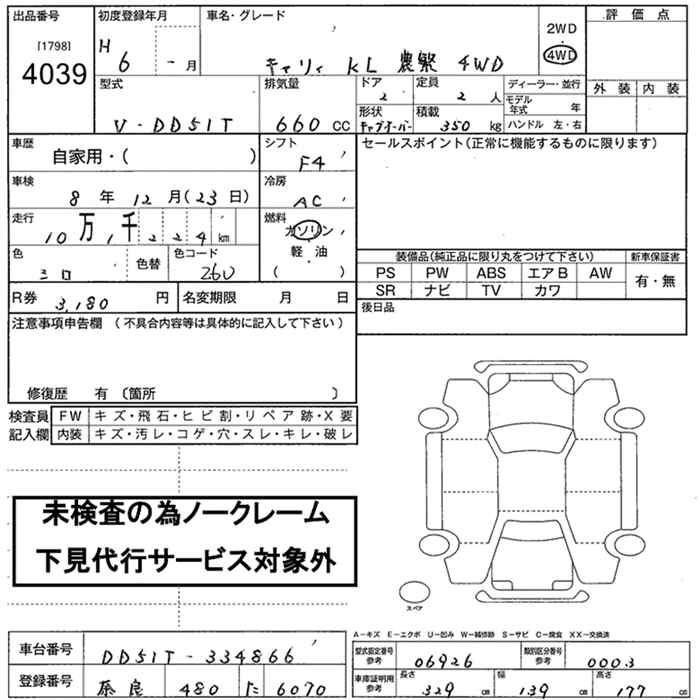 出品番号 [1798] 4039
初度登録年月 H 6 - 月
車名・グレード キャリィ KL 農繁 4WD
2WD
4WD
評価点
外装 内装
型式 V-DD51T
排気量 660 CC
ドア 2
定員 2 人
形状 キャブオーバー
積載 350 kg
ディーラー・並行
モデル年式 年
ハンドル 左・右
車歴 自家用・( )
シフト F4
セールスポイント(正常に機能するものに限ります)
車検 8 年 12 月(23日)
冷房 AC
走行 10万1千224km
燃料 ガソリン・軽油 ( )
色 シロ
色替
色コード 26U
装備品(純正品に限り丸をつけて下さい)
新車保証書
PS PW ABS エアB AW
有・無
SR ナビ TV カワ
R券 3,180 円
名変期限 月 日
後日品
注意事項申告欄 (不具合内容等は具体的に記入して下さい)
修復歴 有 〔箇所 〕
検査員記入欄
FW キズ・飛石・ヒビ割・リペア跡・X要
内装 キズ・汚レ・コゲ・穴・スレ・キレ・破レ
未検査の為ノークレーム
下見代行サービス対象外
スペア
A-キズ E-エクボ U-凹み W-補修跡 S-サビ C-腐食 XX-交換済
車台番号 DD51T-334866
型式指定番号 参考 06926
類別区分番号 参考 0003
登録番号 奈良 480 た 6070
車庫証明用 参考
長さ 329 cm
幅 139 cm
高さ 177 cm